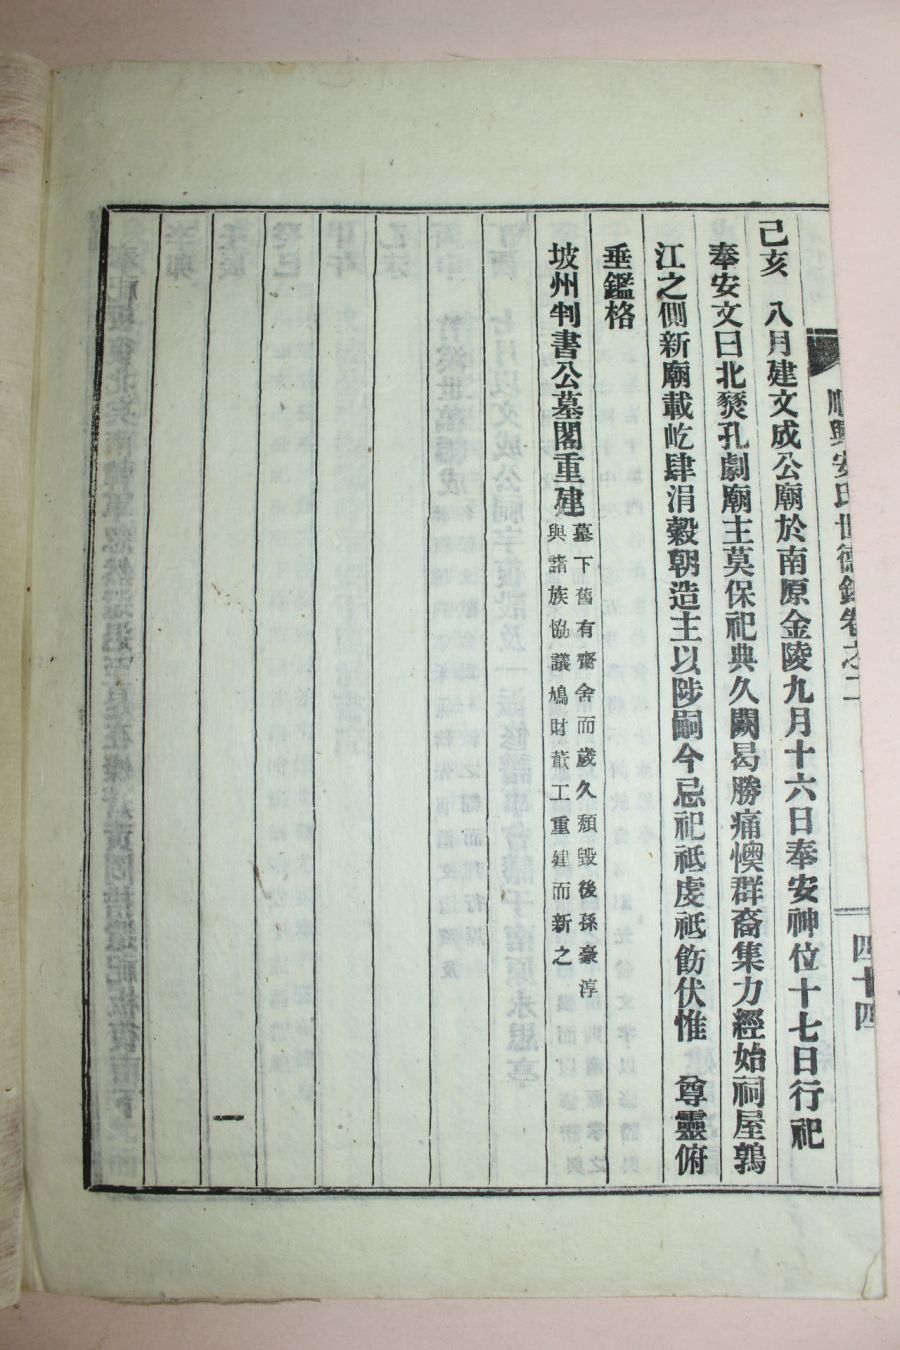 順興安氏世德錄卷之二
四十四
己亥 八月建文成公廟於南原金陵九月十六日奉安神位十七日行祀
奉安文曰北燹孔劇廟主莫保祀典久闕曷勝痛懊群裔集力經始祠屋鶉
江之側新廟載屹肆涓穀朝造主以陟嗣今忌祀祗虔祗飭伏惟 尊靈俯
垂鑑格
坡州判書公墓閣重建
墓下舊有齋舍而歲久頹毀後孫豪淳
與諸族協議鳩財董工重建而新之
一